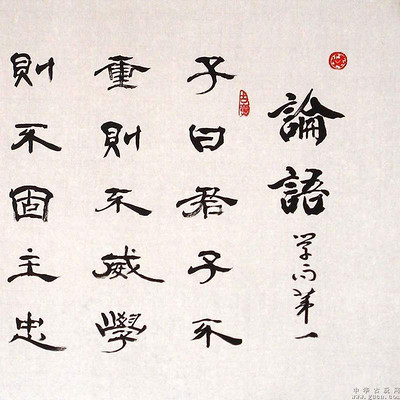 論語
学而第一
子曰君子不
重則不威學
則不固主忠
www.gucn.com